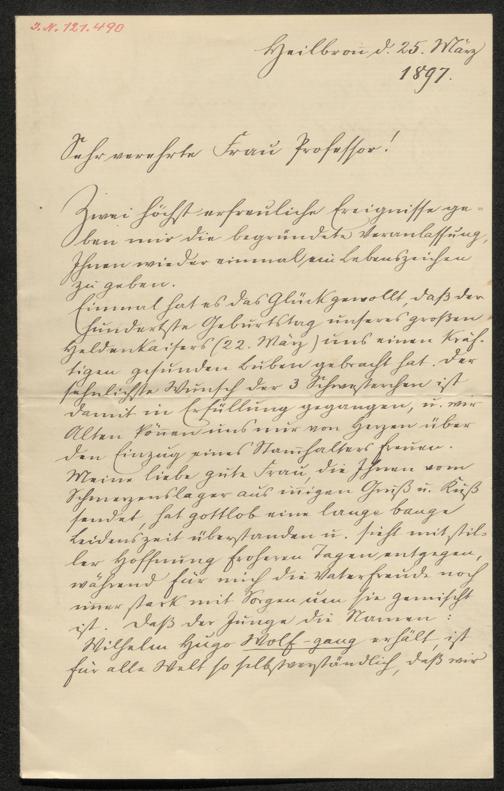 I.N. 121.490
Heilbron̄ d. 25. März
1897.
Sehr verehrte Frau Professor!
Zwei höchst erfreuliche Ereignisse ge-
ben mir die begründete Veranlassung,
Ihnen wieder einmal ein Lebenszeichen
zu geben.
Einmal hat es das Glück gewollt, daß der
hundertste Geburtstag unseres großen
Heldenkaisers (22. März) uns einen kräf-
tigen gesunden Buben gebracht hat. Der
sehnlichste Wunsch der 3 Schwesterchen ist
damit in Erfüllung gegangen, u. wir
Alten kön̄en uns nur von Herzen über
den Einzug eines Stam̄halters freuen.
Meine liebe gute Frau, die Ihnen vom
Schmerzenslager aus in̄igen Gruß u. Kuß
sendet, hat gottlob eine lange bange
Leidenszeit überstanden u. sieht mit stil-
ler Hoffnung froheren Tagen entgegen,
während für mich die Vaterfreude noch
im̄er stark mit Sorgen um sie gemischt
ist. Daß der Junge die Namen:
Wilhelm Hugo Wolf-gang erhält, ist
für alle Welt so selbstverständlich, daß wir